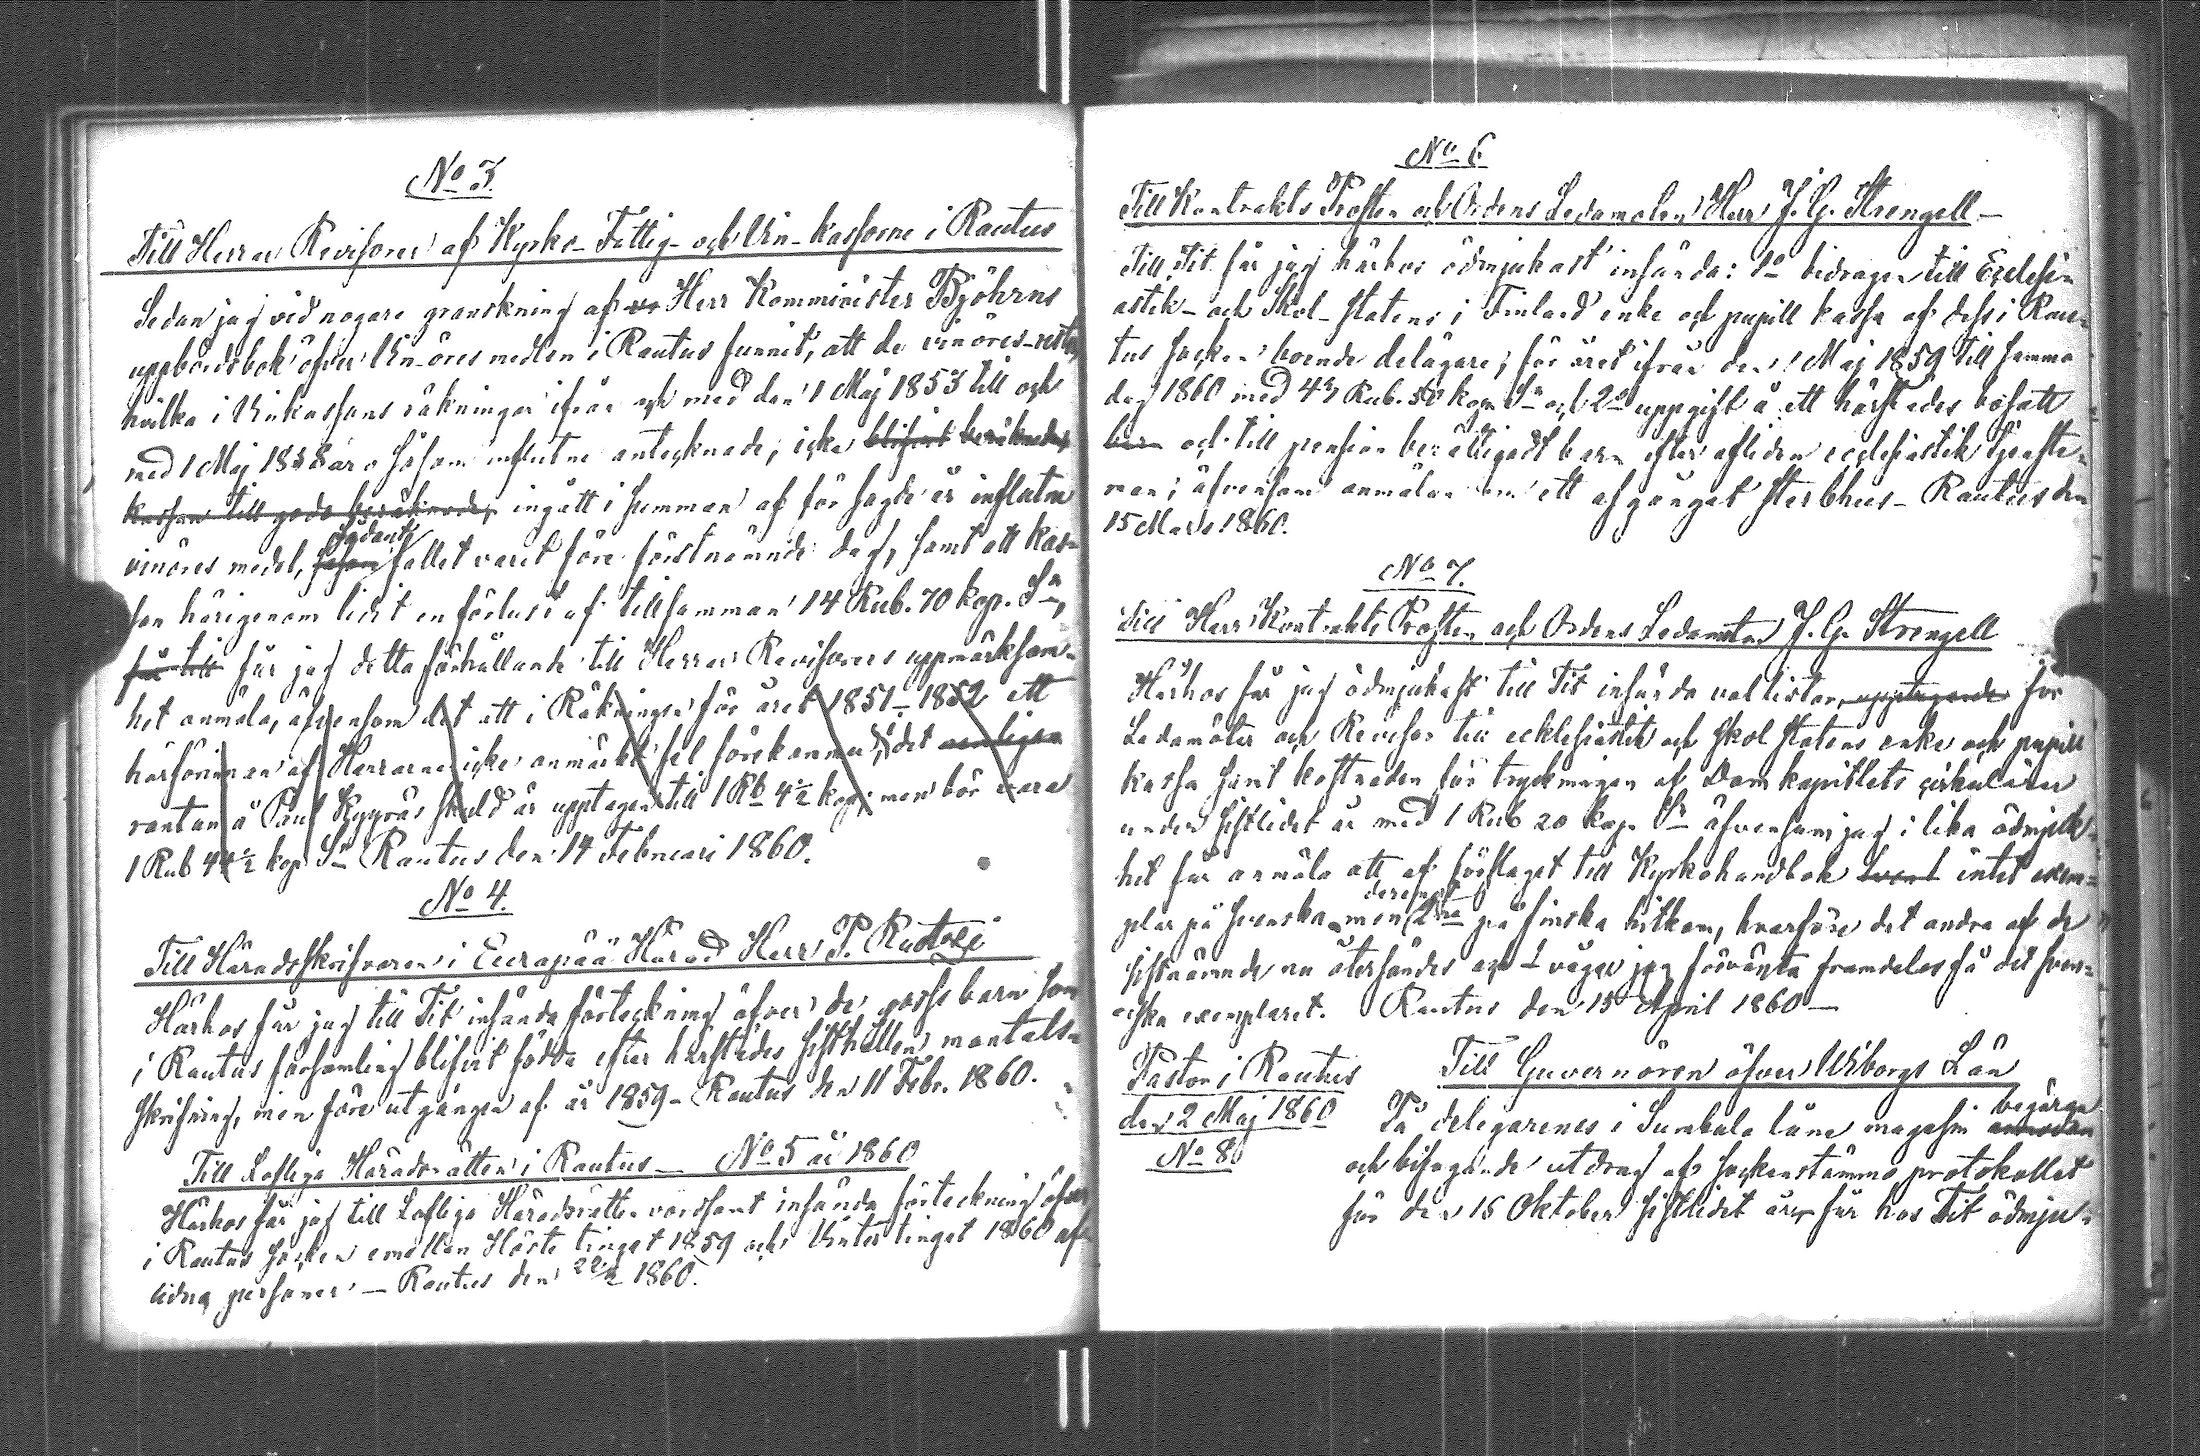 No 3.
Till Herrar Revisorer af Kyrko- Fattig- och Vin-kassorne i Rautus
Sedan jag vid nogare granskning af Herr Komminister Björhns
uppbördsbok öfver Vin-öres medlen i Rautus funnit, att de vinöres-rester,
hvilka i Vinkassans räkningar ifrån och med den 1 Maj 1853 till och
med 1 Maj 1858 äro såsom influtne antecknade, icke blifvit beräknade
kassan till godo beräknade, ingått i summan af för sagde år influtna
vinöres medel, såsom sådant fallet varit före förstnämnde dag, samt att kas-
san härigenom lidit en förlust af tillsamman 14 Rub. 70 kop. Sr,
får till får jag detta förhållande till Herrar Revisorers uppmärksam-
het anmäla, äfvensom det att i Räkningen för året 1851-1852 ett
härförinnan af Herrarne icke anmärkt fel förekommer, i det nemligen
räntan å Paul Kyyräs skuld är upptagen till 1 Rb 4½ kop. men bör vara
1 Rub 44½ kop Sr Rautus den 14 Februari 1860.
No 4.
Till Häradsskrifvaren i Euräpää Härad Herr P.
Härhos får jag till Tit insända förteckning öfver de gosse barn som
i Rautus församling blifvit födda efter härstädes sisthållen mantals-
skrifning, men före utgången af år 1859- Rautus den 11 Febr. 1860.
Till Lofliga Häradsrätten i Rautus — No 5 år 1860
Härhos får jag till Lofliga Häradsrätten vördsamt insända förteckning öfver
i Rautus socken emellan Höste tinget 1859 och Vintertinget 1860 af-
lidna personer — Rautus den 22/2 1860.
No 6.
Till Kontrakts Prosten och Ordens Ledamoten Herr J. G. Strengell —
Till Tit får jag härhos ödmjukast insända: 1o bidragen till Ecclesi-
astik- och Skol-statens i Finland enke och pupill kassa af dess i Rau-
tus socken boende delägare, för året ifrån den 1 Maj 1859 till samma
dag 1860 med 43 Rub. 50 kop Sr och 2o uppgift å ett härstädes bosatt
barn och till pension berättigadt barn efter afliden ecclesiastik tjenste-
man; äfvensom anmälan om ett afgånget sterbhus- Rautus den
15 Mars 1860.
No 7.
Till Herr Kontrakts Prosten och Ordens Ledamoten J. G. Strengell
Härhos får jag ödmjukast till Tit insända vallistor, upptagande för
Ledamöter och Revisor till ecklesiastik och skol statens enke och pupill
kassa samt kostnaden för tryckningen af Domkapitlets cirkulärer
under sistlidet år med 1 Rub 20 kop Sr äfvensom jag i lika ödmjuk-
het får anmäla att af förslaget till Kyrkohandbok intet exem-
plar på svenska, men deremot 2ne på finska hitkom, hvarföre det andra af de
sistnämnde nu återsändes och vågar jag förvänta framdeles få det sven-
ska exemplaret. Rautus den 15 April 1860 —
Pastor i Rautus
den 2 Maj 1860
No 8.
Till Guvernören öfver Wiborgs Län
På delegarenes i Sumbula låne magasin begäran
och bifogande utdrag af sockenstämmo protokollet
för den 16 Oktober sistlidet år, får hos Tit ödmju-